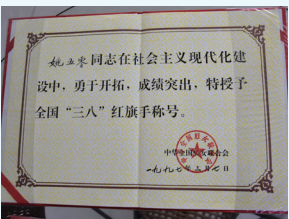 姚五零同志在社会主义现代化建
设中，勇于开拓，成绩突出，特授予
全国“三八”红旗手称号。
中华全国妇女联合会
一九九七年三月七日